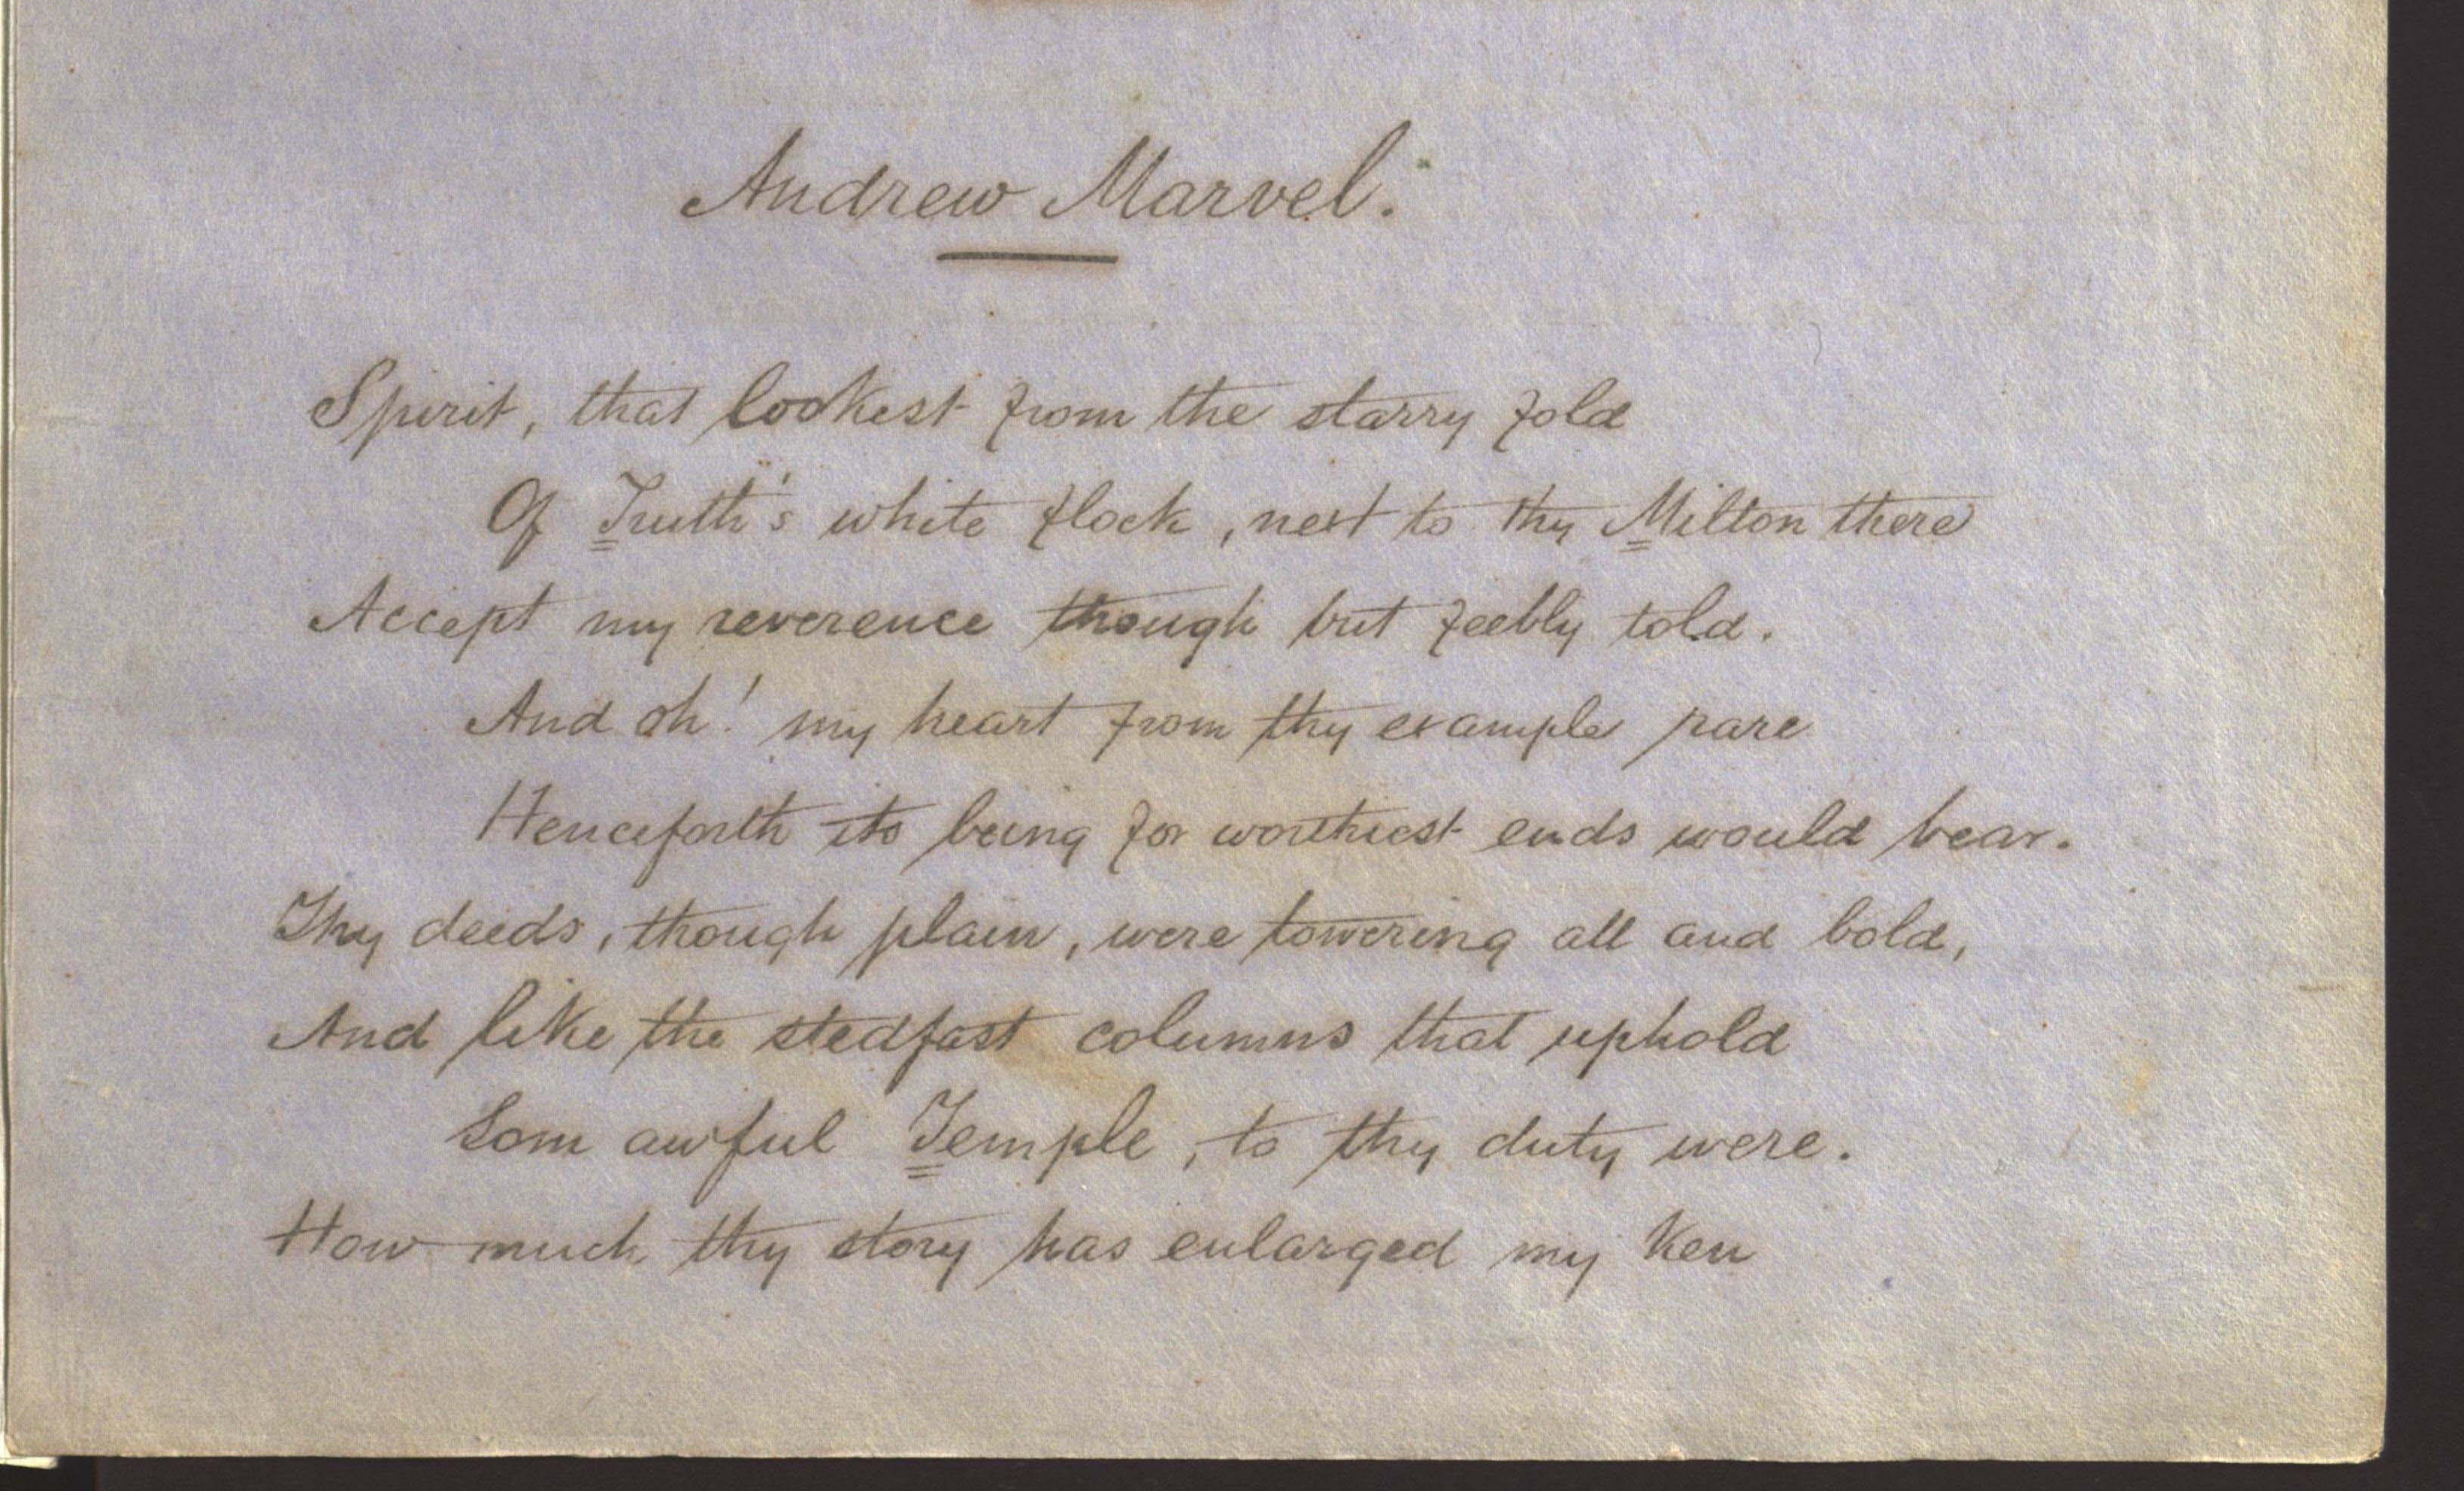 Andrew Marvel.
Spirit, that lookest from the starry fold
Of Truth's white flock, next to thy Milton there
Accept my reverence though but feebly told.
And oh! my heart from thy example rare
Henceforth its being for worthiest ends would bear.
Thy deeds, though plain, were towering all and bold,
And like the stedfast columns that uphold
Som awful Temple, to thy duty were.
How much thy story has enlarged my ken